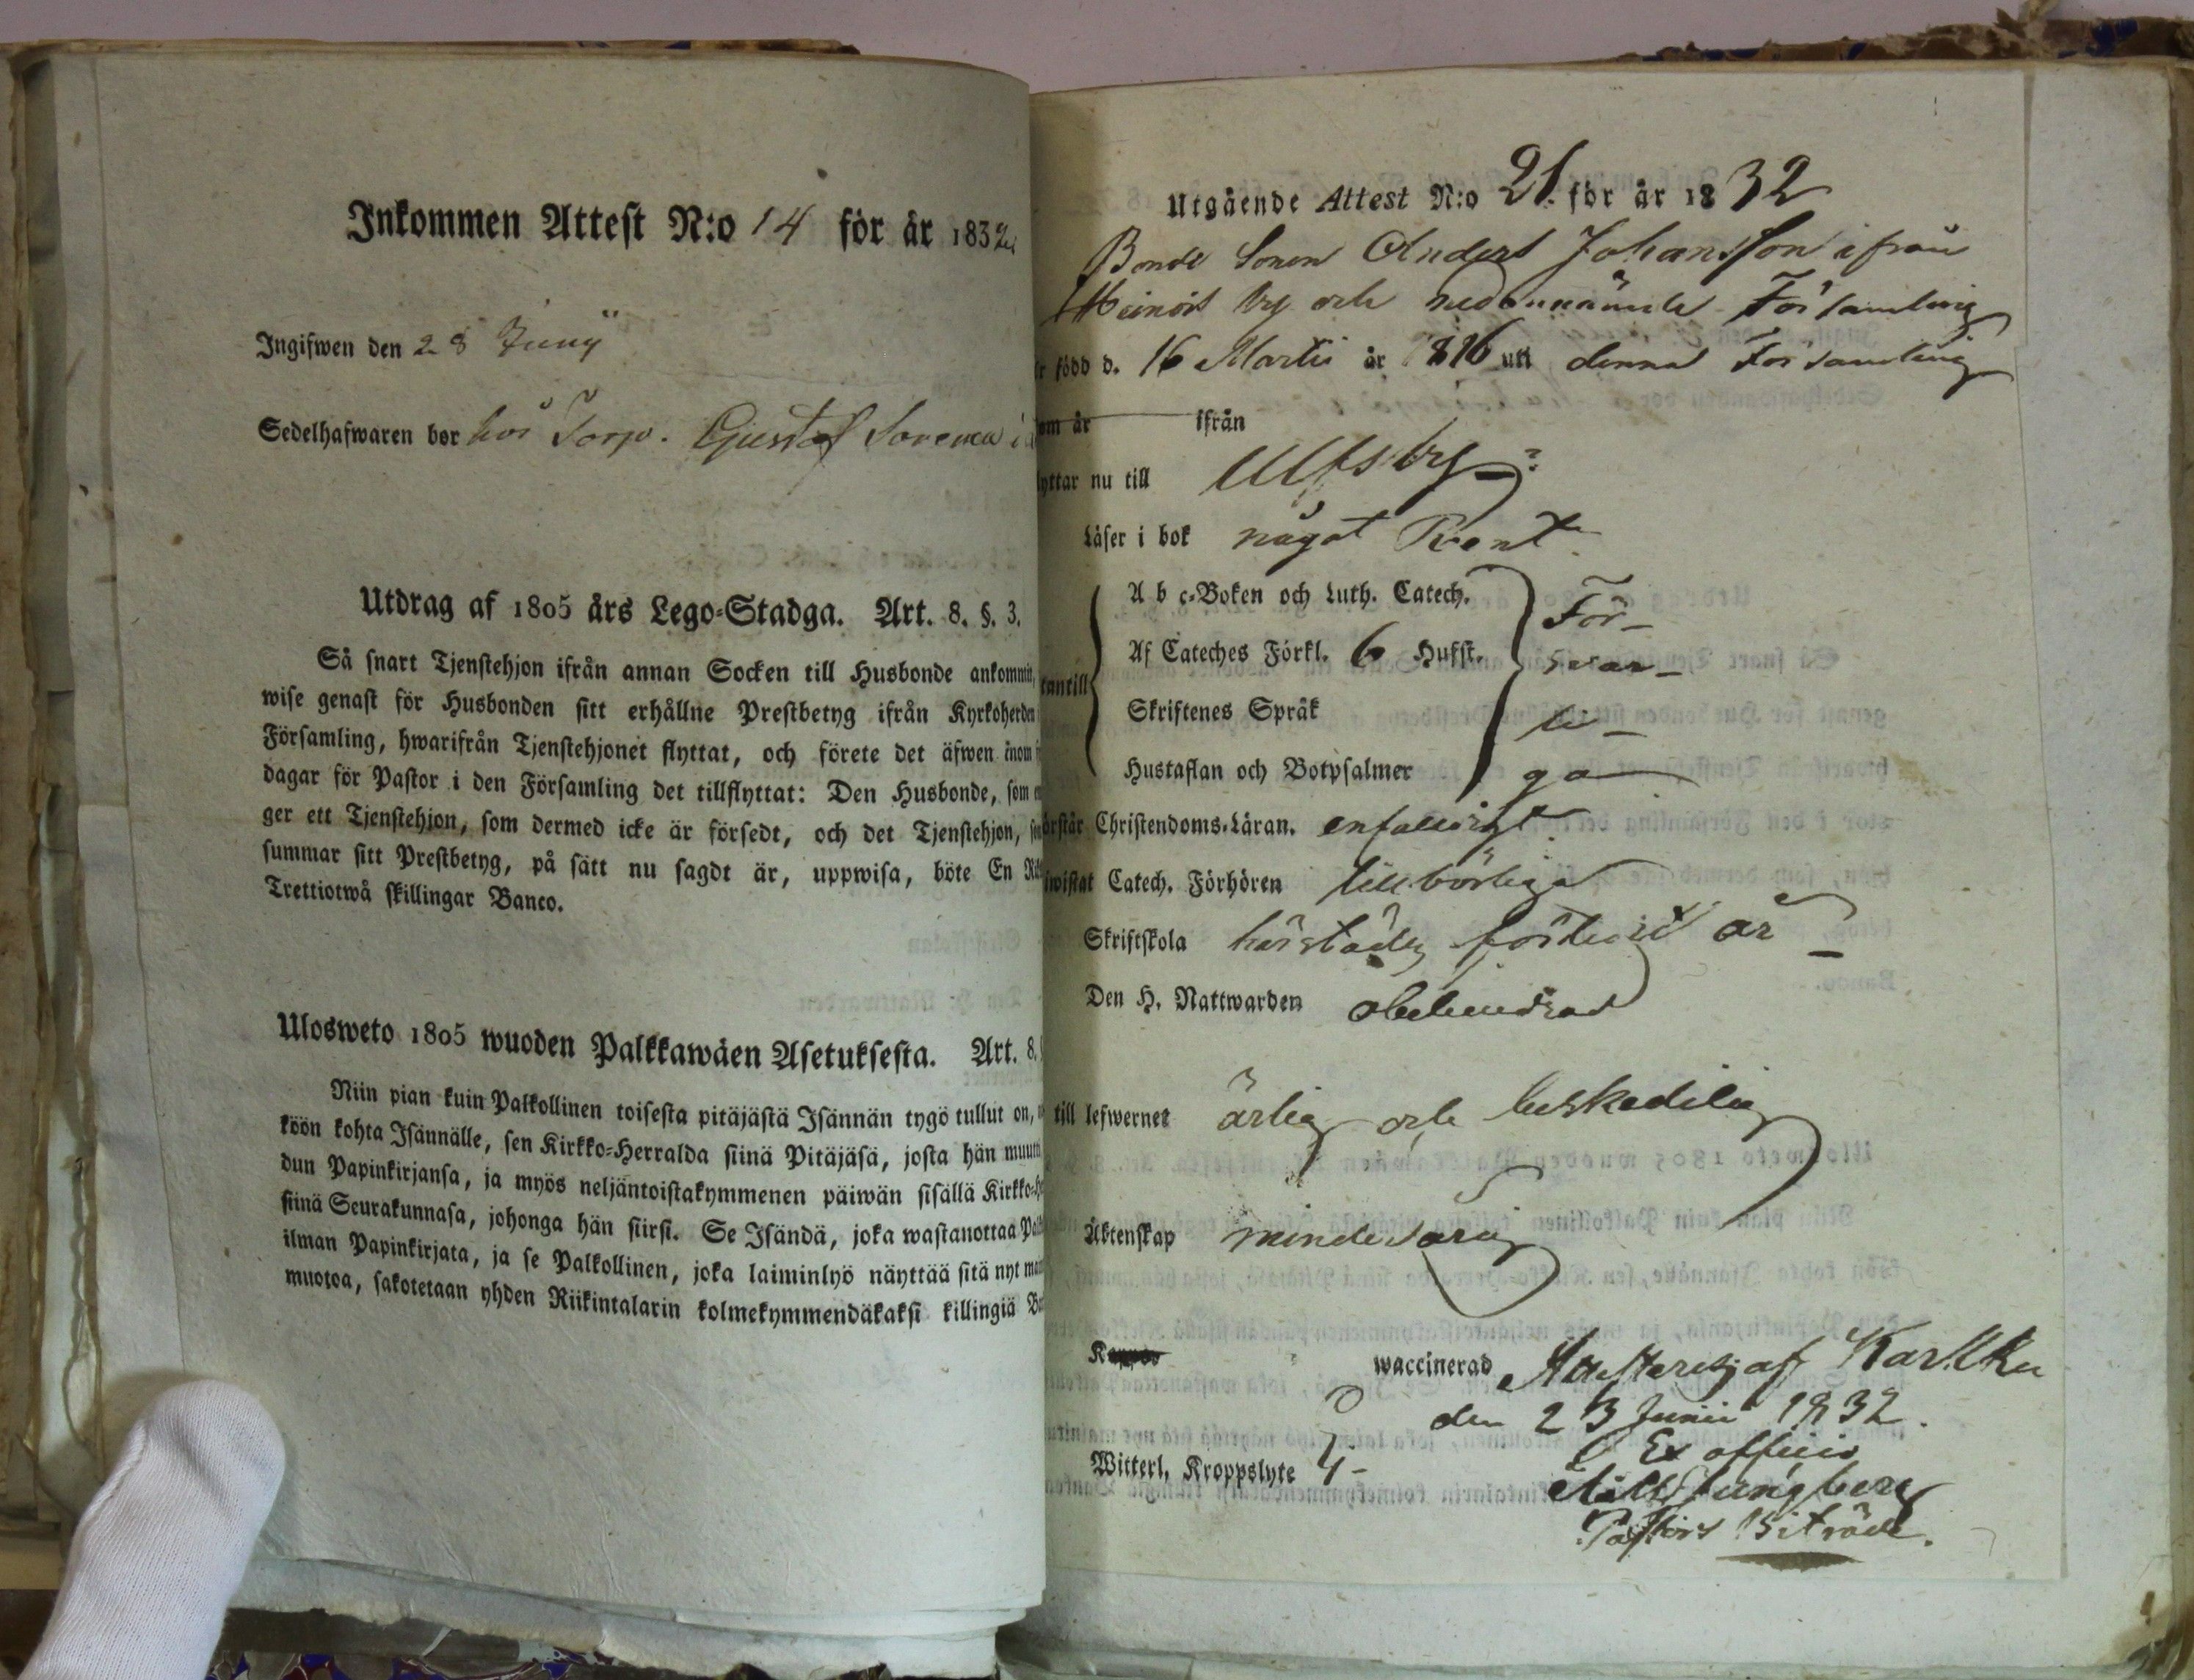 Inkommen Attest N:o 14 för år 1832
Ingifwen den 28 Junij
Sedelhafwaren bor hos Torp. Gustaf
Utdrag af 1805 års Lego-Stadga. Art. 8. §. 3.
Så snart Tjenstehjon ifrån annan Socken till Husbonde ankommit,
wise genast för Husbonden sitt erhållne Prestbetyg ifrån Kyrkoherden
Församling, hwarifrån Tjenstehjonet flyttat, och förete det äfwen inom
dagar för Pastor i den Församling det tillflyttat: Den Husbonde, som
ger ett Tjenstehjon, som dermed icke är försedt, och det Tjenstehjon,
summar sitt Prestbetyg, på sätt nu sagdt är, uppwisa, böte En
Trettiotwå skillingar Banco.
Ulosweto 1805 wuoden Palkkawäen Asetuksesta. Art. 8.
Niin pian kuin Palkollinen toisesta pitäjästä Isännän tygö tullut on,
köön kohta Isännälle, sen Kirkko-Herralda siinä Pitäjäsä, josta hän
dun Papinkirjansa, ja myös neljäntoistakymmenen päiwän sisällä
siinä Seurakunnasa, johonga hän siirsi. Se Isändä, joka wastanottaa
ilman Papinkirjata, ja se Palkollinen, joka laiminlyö näyttää sitä nyt
muotoa, sakotetaan yhden Riikintalarin kolmekymmendäkaksi killingiä
Utgående Attest N:o 21. för år 1832
Bonde Sonen Anders Johansson ifrån
Heinois by och nedannämnde Församling
är född d. 16 Martii år 1816 uti denna Församling
om år ifrån
yttar nu till Ulfsby
Läser i bok något Rent
A b c-Boken och Luth. Catech. För-
Af Cateches Förkl. 6 Hufst. svar-
antill
Skriftenes Språk li-
Hustaflan och Botpsalmer ga
örstår Christendoms-Läran. enfaldigt
wistat Catech. Förhören tillbörliga
Skriftskola härstädes förledit år
Den H. Nattwarden obehindrad
till lefwernet ärlig och beskedelig
Äktenskap minderårig
waccinerad Attesterasj af Karkku
den 23 Junii 1832.
Ex officio
Witterl. Kroppslyte
Ljungberg
Pastors Biträde.